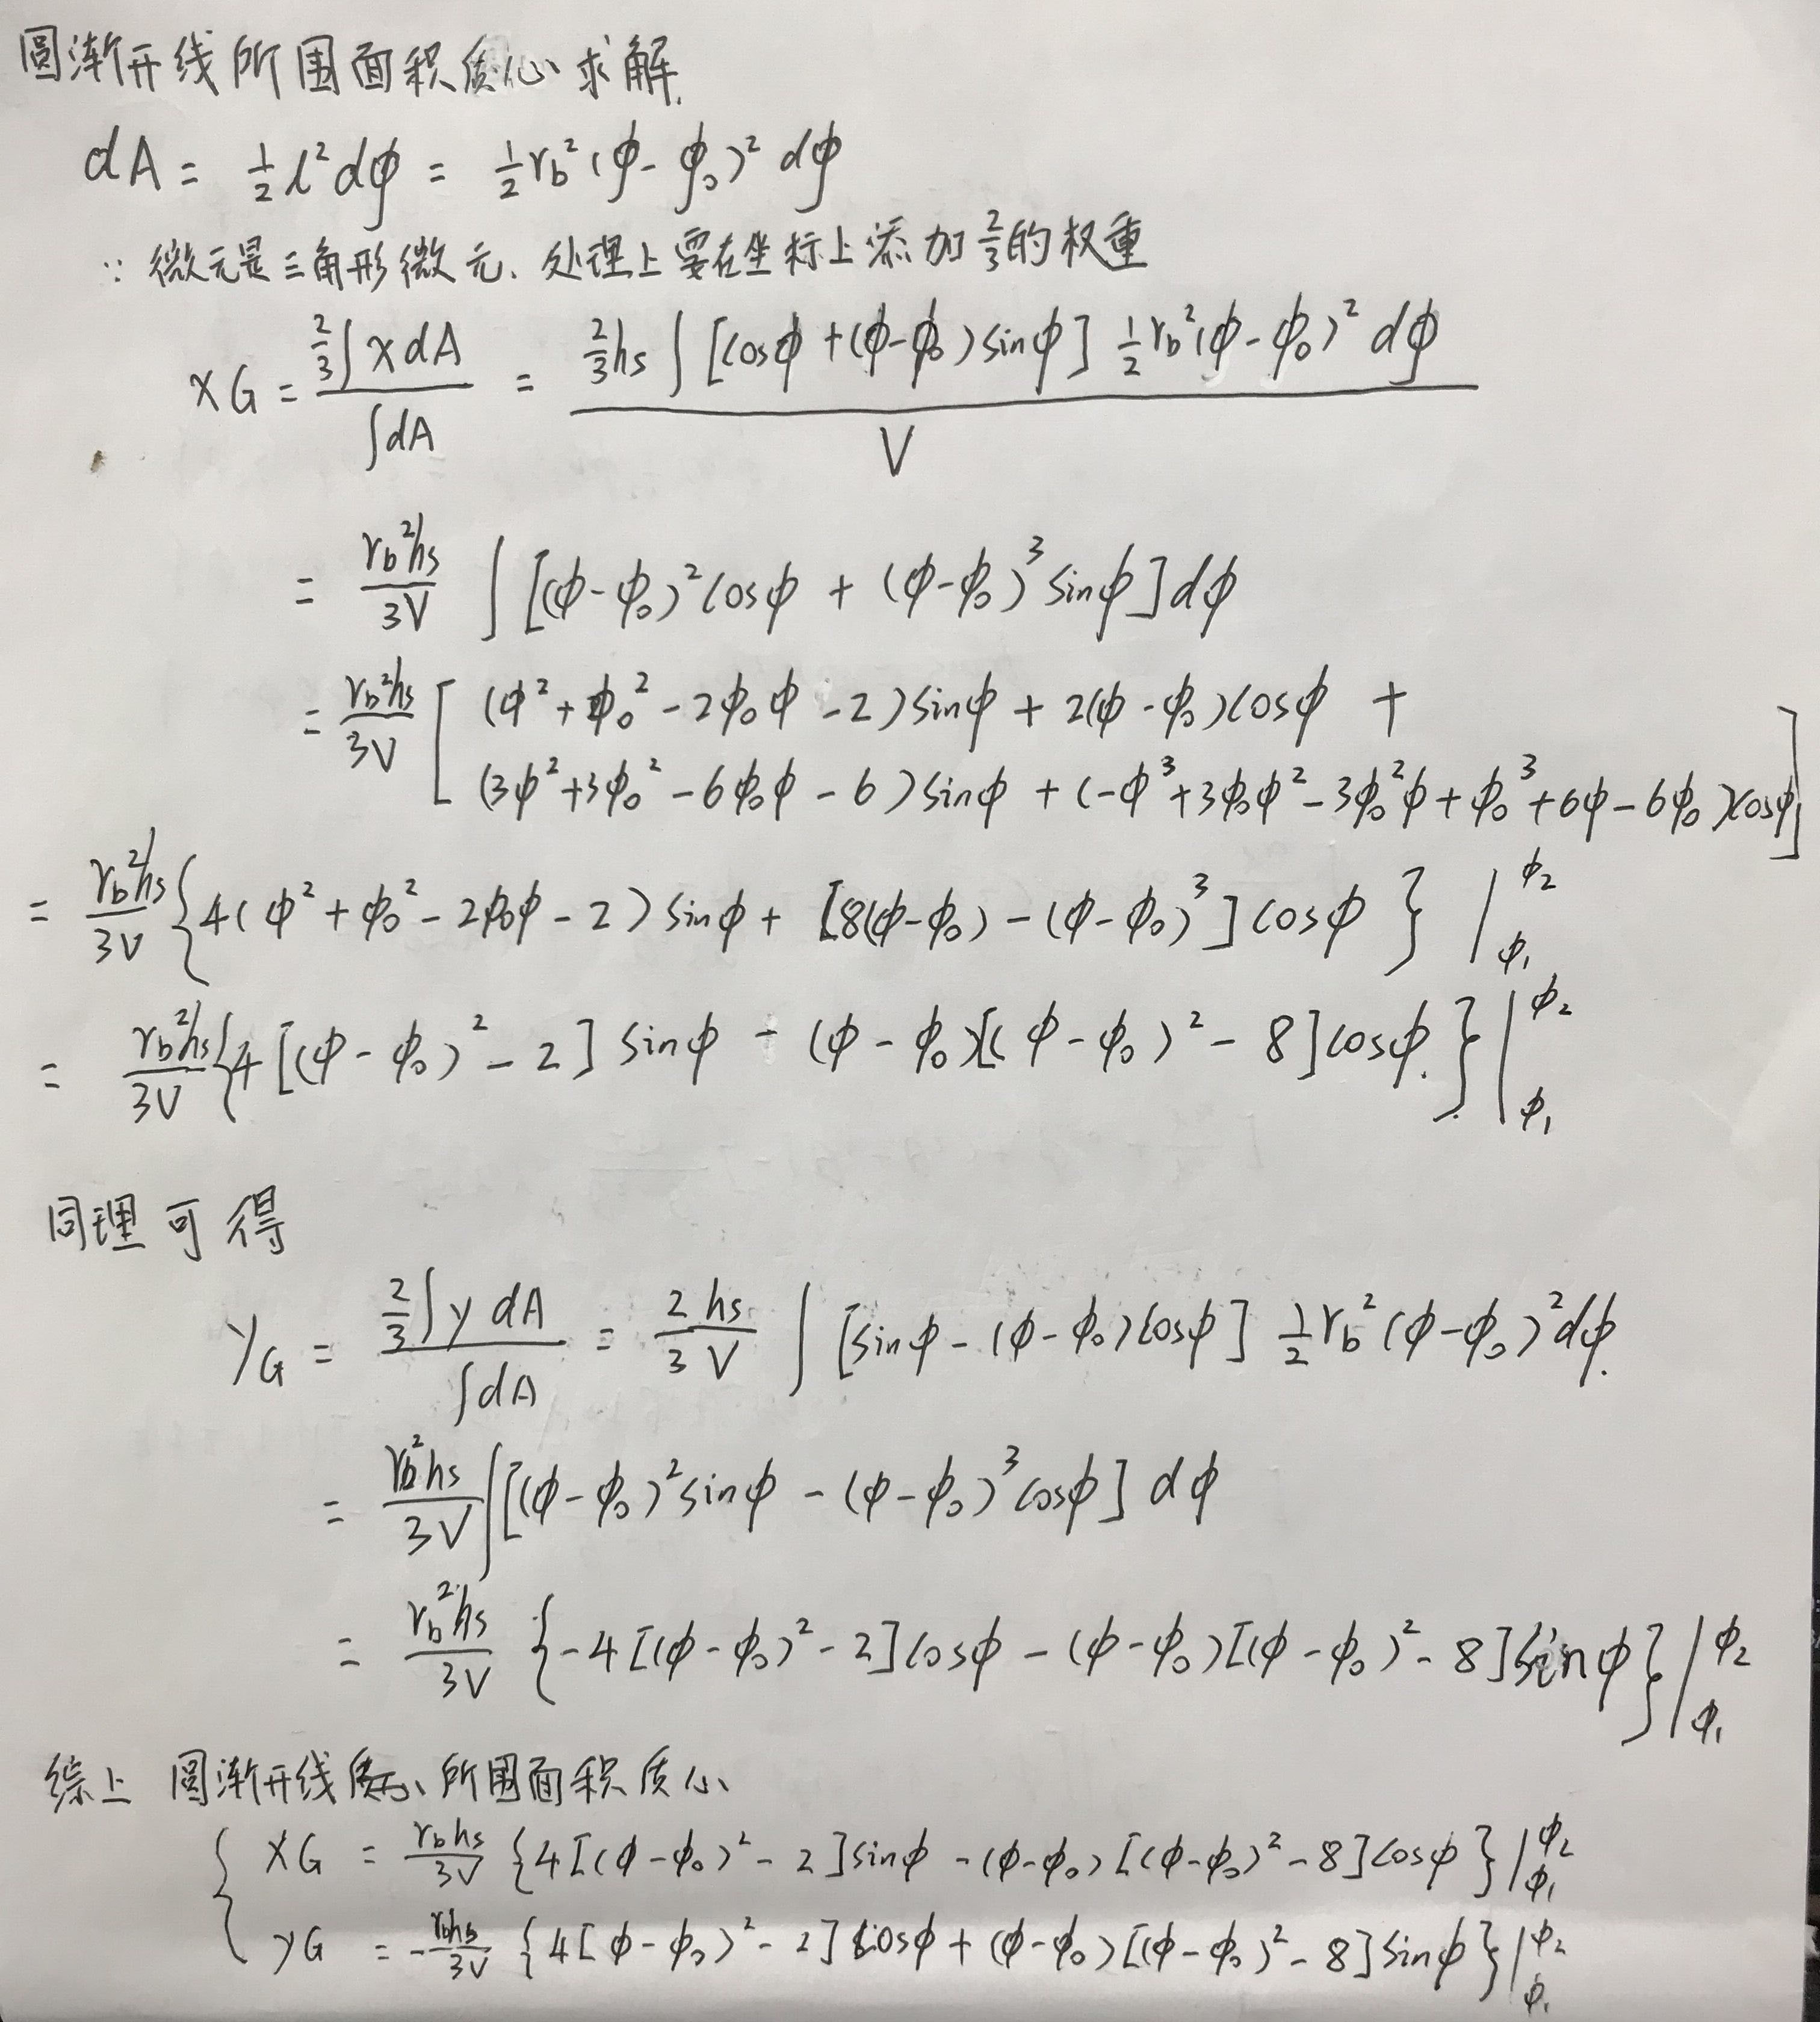 圆渐开线所围面积质心求解.
dA = ½ l² dφ = ½ r_b² (φ - φ₀)² dφ
∵ 微元是三角形微元、处理上要在坐标上添加 2/3 的权重
xG = (2/3 ∫ x dA) / (∫ dA) = (2/3 hs ∫ [cosφ + (φ-φ₀) sinφ] ½ r_b² (φ-φ₀)² dφ) / V
= (r_b² hs / 3V) ∫ [(φ-φ₀)² cosφ + (φ-φ₀)³ sinφ] dφ
= (r_b² hs / 3V) [ (φ² + φ₀² - 2φ₀φ - 2) sinφ + 2(φ - φ₀) cosφ +
(3φ² + 3φ₀² - 6φ₀φ - 6) sinφ + (-φ³ + 3φ₀φ² - 3φ₀²φ + φ₀³ + 6φ - 6φ₀) cosφ ]
= (r_b² hs / 3V) { 4(φ² + φ₀² - 2φ₀φ - 2) sinφ + [8(φ-φ₀) - (φ-φ₀)³] cosφ } |φ₁ φ₂
= (r_b² hs / 3V) { 4[(φ - φ₀)² - 2] sinφ - (φ - φ₀)[(φ - φ₀)² - 8] cosφ. } |φ₁ φ₂
同理可得
yG = (2/3 ∫ y dA) / (∫ dA) = (2 hs / 3 V) ∫ [sinφ - (φ-φ₀) cosφ] ½ r_b² (φ-φ₀)² dφ.
= (r_b² hs / 3V) ∫ [(φ-φ₀)² sinφ - (φ-φ₀)³ cosφ] dφ
= (r_b² hs / 3V) { -4[(φ-φ₀)² - 2] cosφ - (φ-φ₀)[(φ-φ₀)² - 8] sinφ } |φ₁ φ₂
综上 圆渐开线 所围面积质心
{ xG = (r_b hs / 3V) { 4[(φ-φ₀)² - 2] sinφ - (φ-φ₀)[(φ-φ₀)² - 8] cosφ } |φ₁ φ₂
yG = - (r_b hs / 3V) { 4[φ-φ₀)² - 2] cosφ + (φ-φ₀)[(φ-φ₀)² - 8] sinφ } |φ₁ φ₂